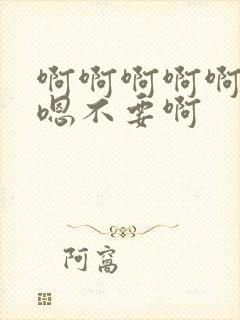 啊啊啊啊啊
嗯不要啊
阿窝